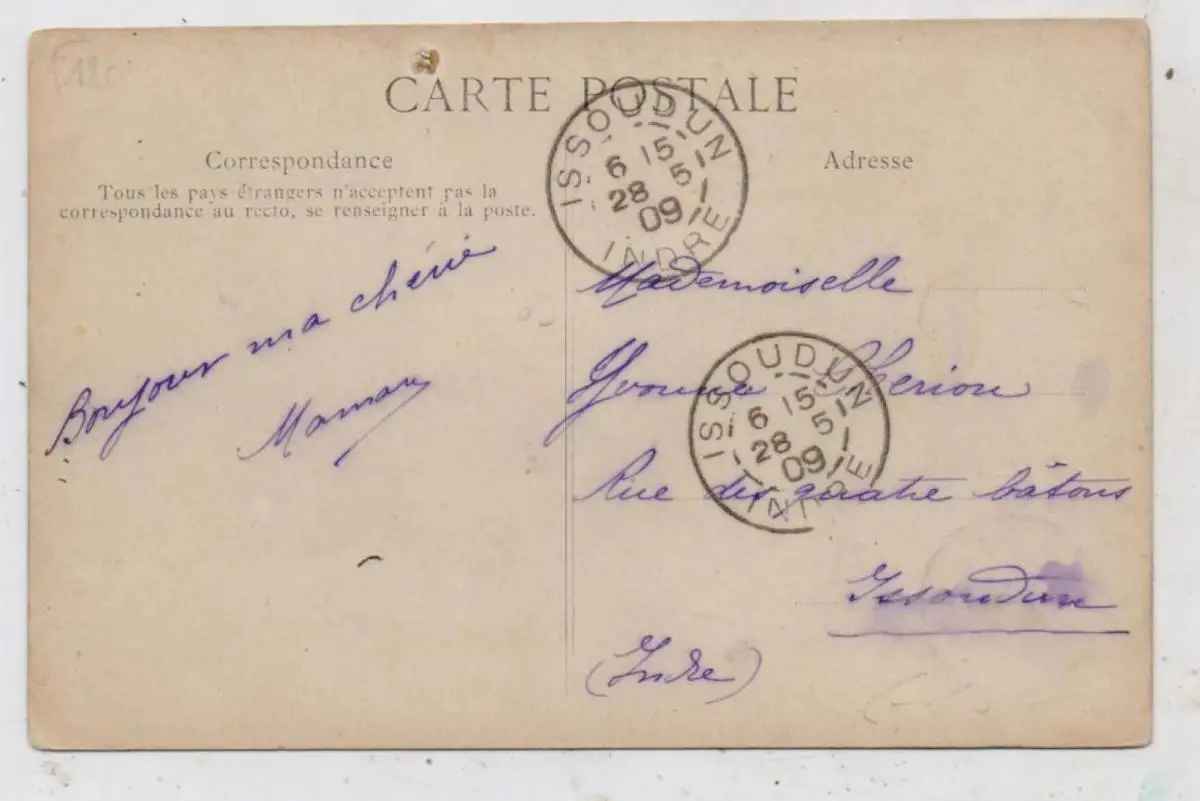 CARTE POSTALE
Correspondance
Tous les pays étrangers n'acceptent pas la
correspondance au recto, se renseigner à la poste.
Bonjour ma chérie
Maman
Adresse
ISSOUDUN
6 15
28 5
09
INDRE
Mademoiselle
Yvonne Theriou
ISSOUDUN
6 15
28 5
09
INDRE
Rue des quatre bâtons
Issoudun
(Indre)